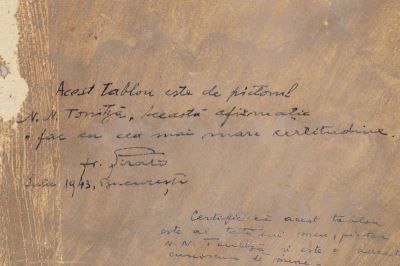 Acest tablou este de pictorul
N. N. Tonitză, această afirmație
o fac cu cea mai mare certitudine.
Fr. Șirato
Iulie 1943, București
Certific că acest tablou
este al tatălui meu, pictor
N. N. Tonitză și este o
cunoscută de mine